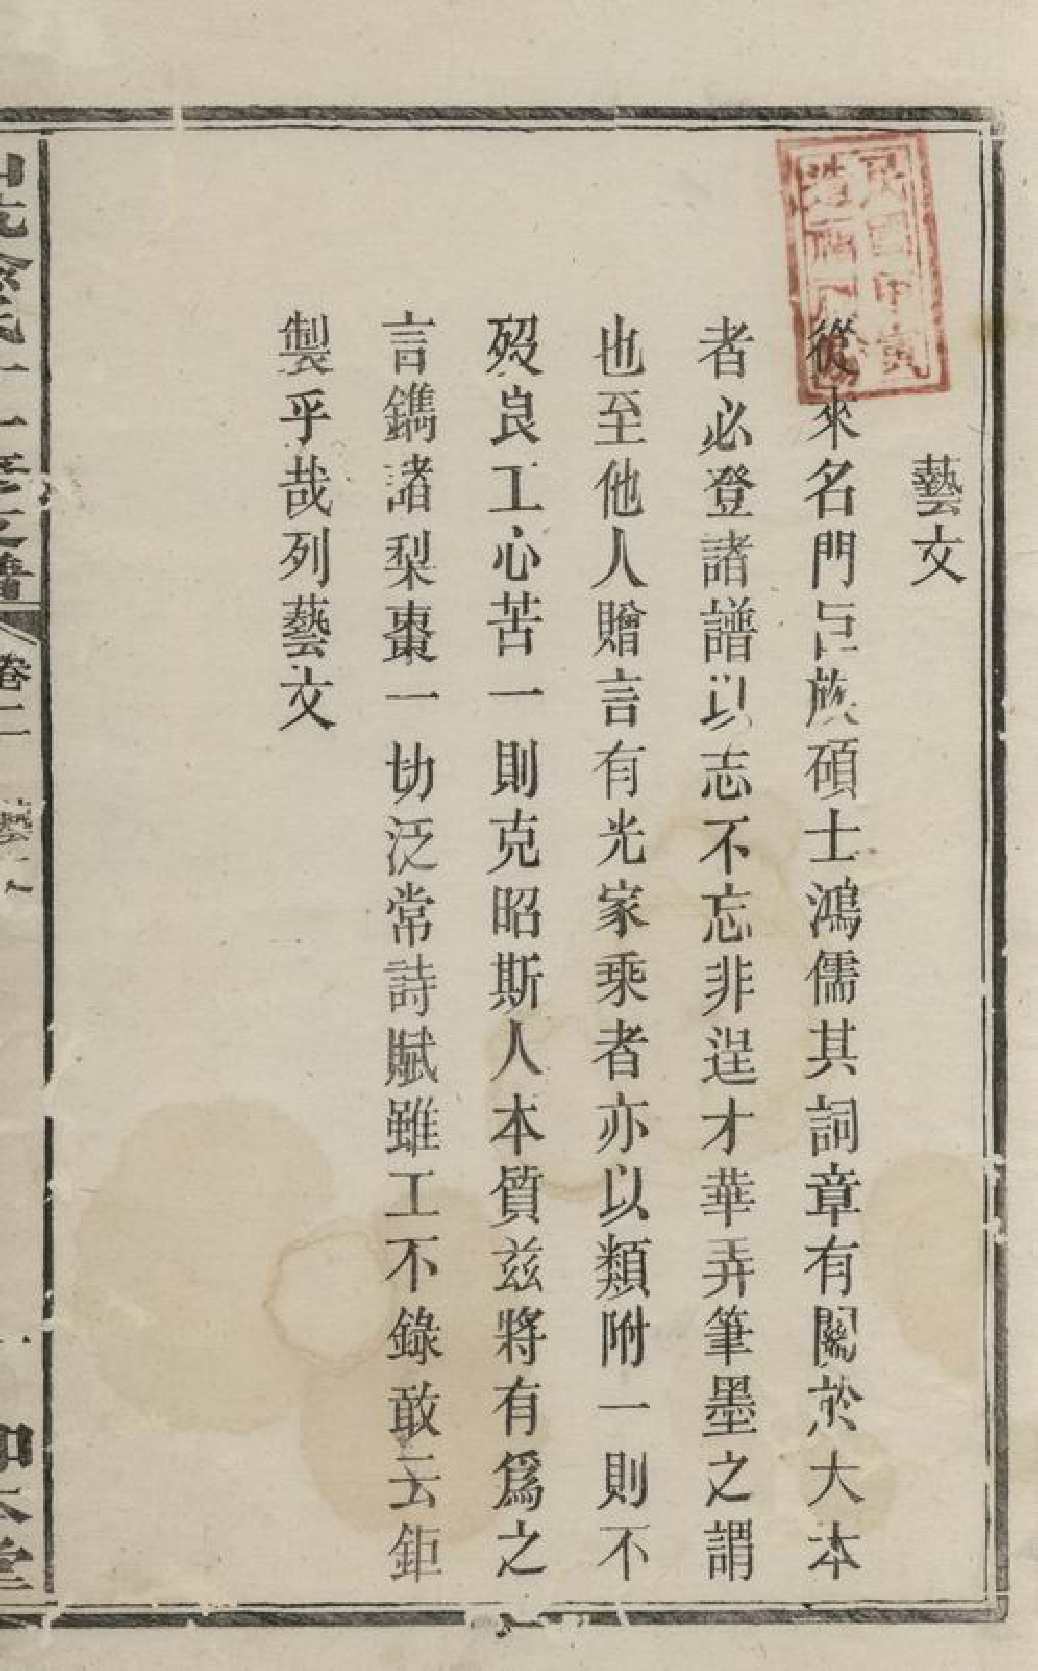 藝文
從來名門巨族碩士鴻儒其詞章有關於大本
者必登諸譜以志不忘非逞才華弄筆墨之謂
也至他人贈言有光家乘者亦以類附一則不
歿良工心苦一則克昭斯人本質兹將有為之
言鐫諸梨棗一切泛常詩賦雖工不錄敢云鉅
製乎哉列藝文
民國甲寅
卷二
藝文